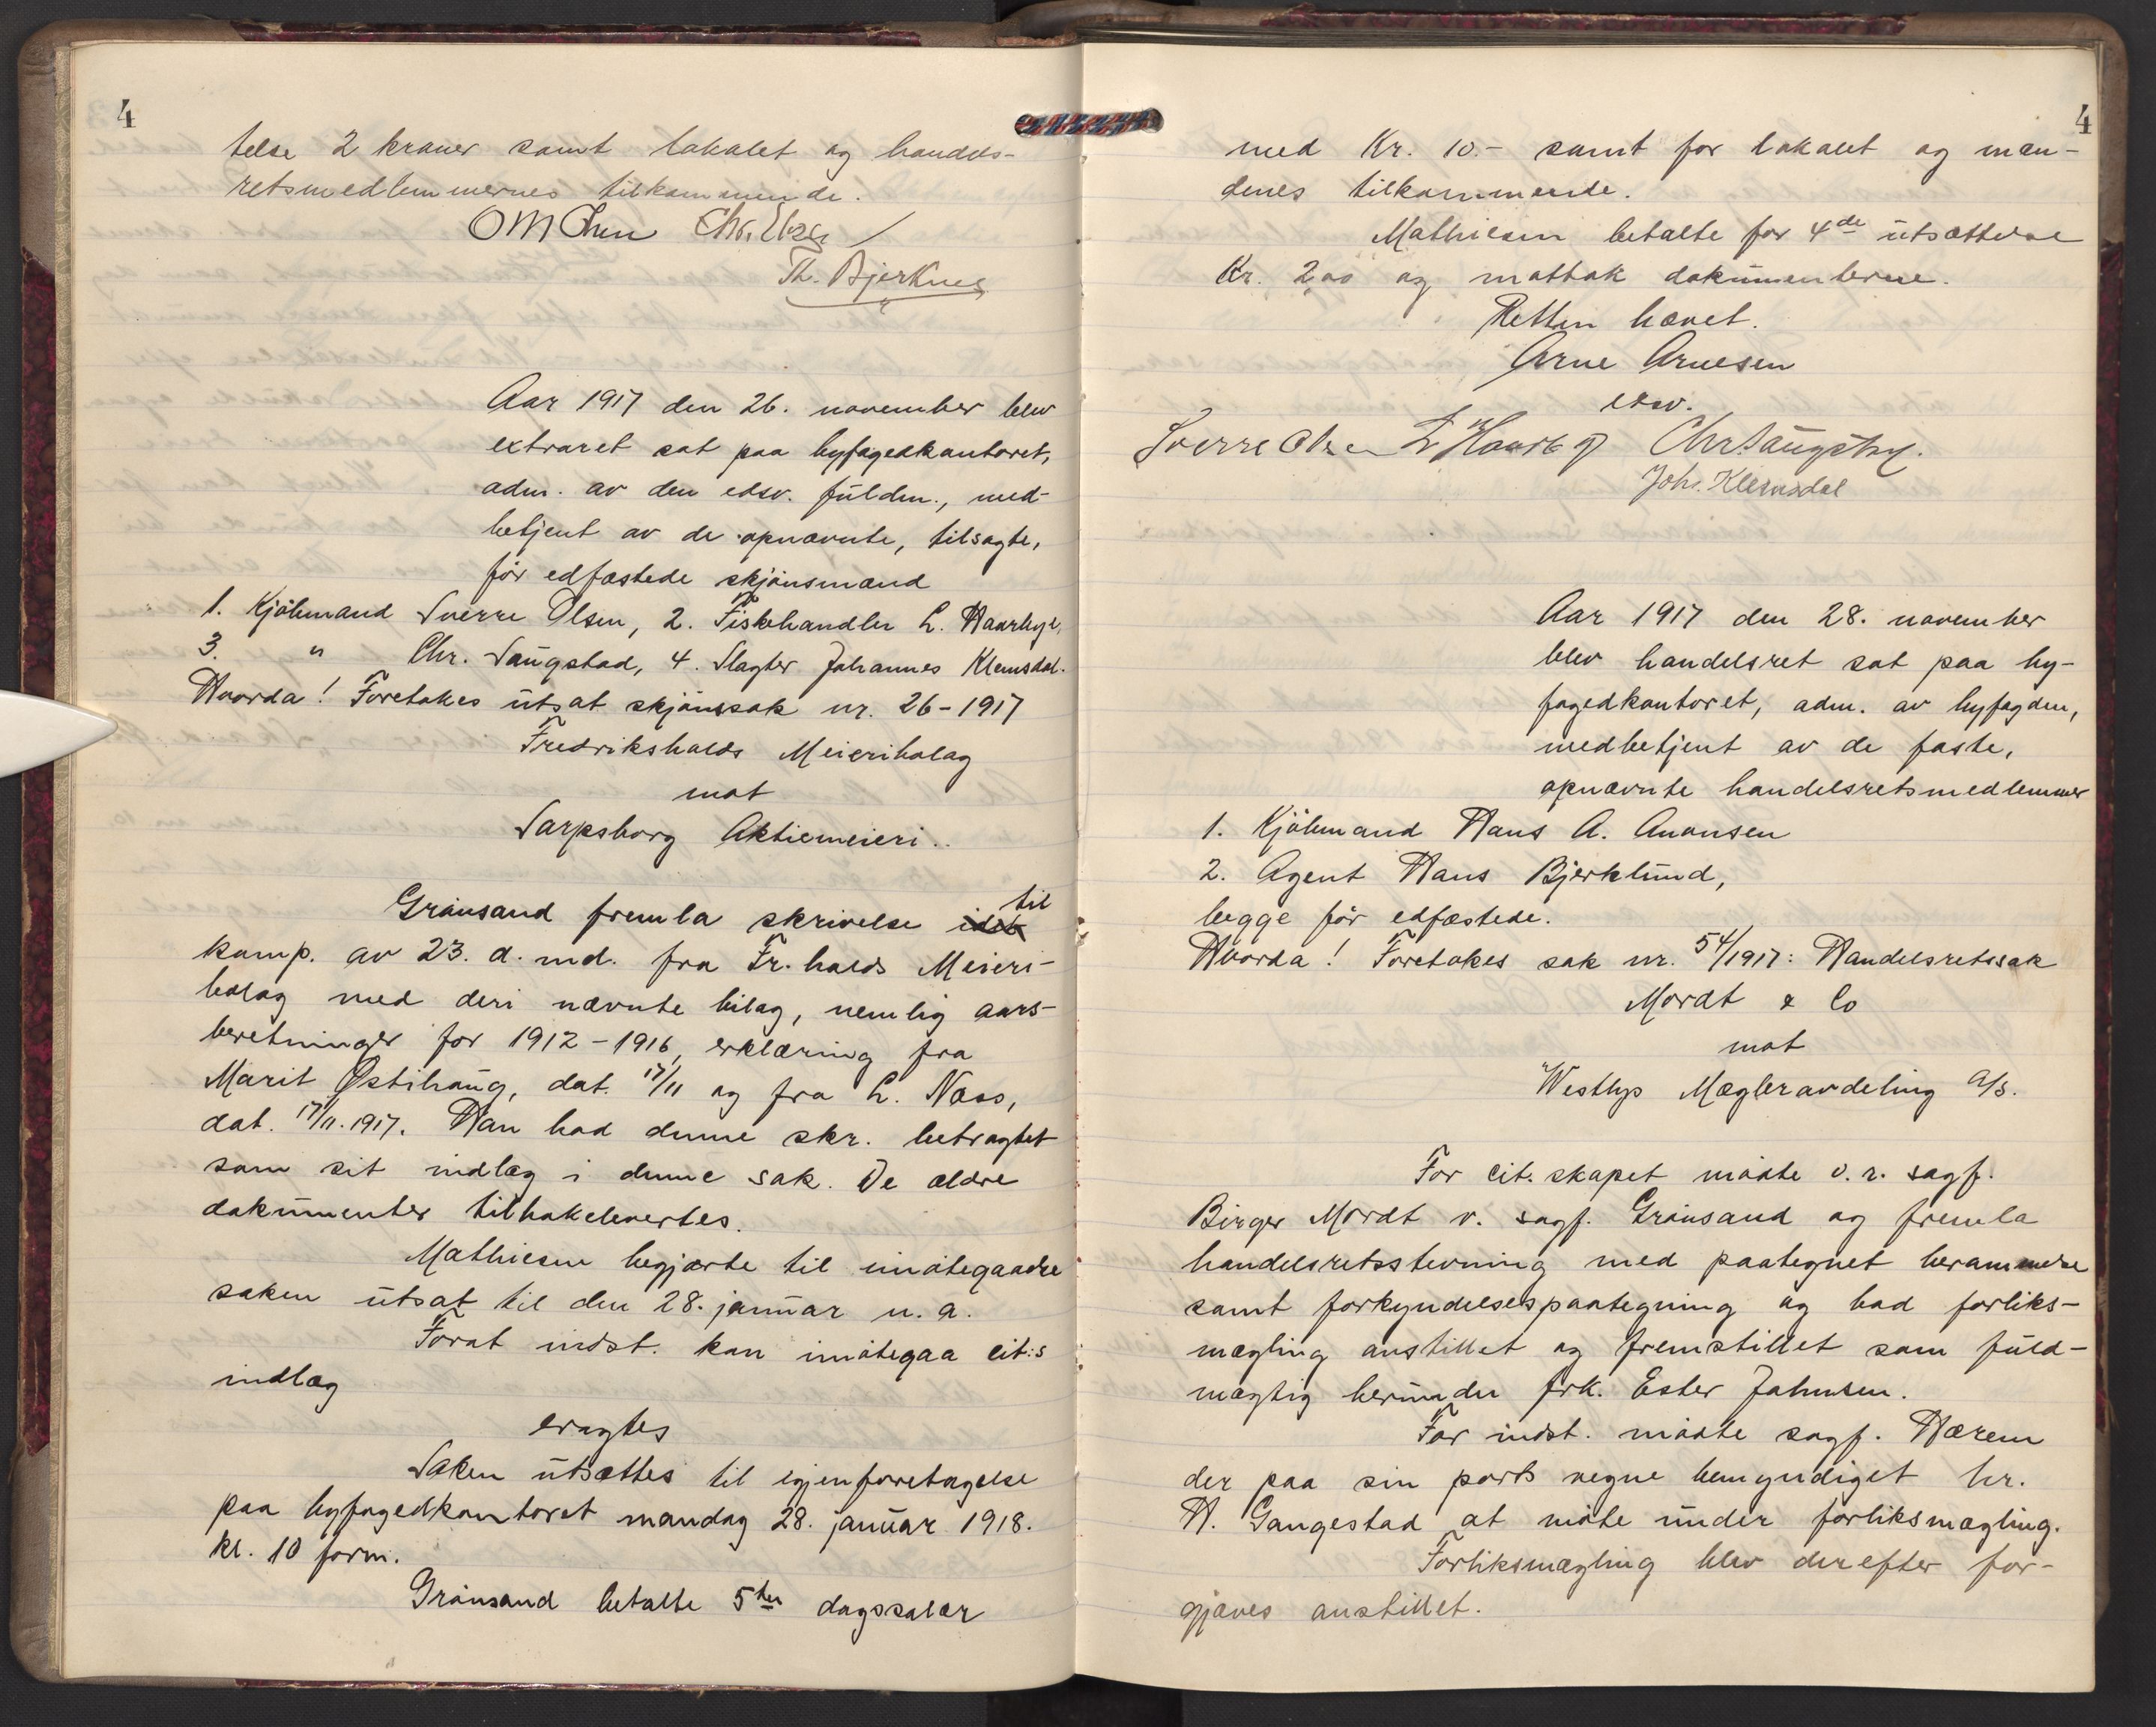 4
telse 2 kroner samt lokalet og handels-
retsmedlemmernes tilkommende.
OM Olsen Chr.
Th. Bjerknes
Aar 1917 den 26. november blev
extraret sat paa byfogedkontoret,
adm. av den edsv. fuldm., med-
betjent av de opnævnte, tilsagte,
før edfæstede skjønsmænd
1. Kjøbmand Sverre Olsen, 2. Fiskehandler L. Haarbye,
3. " Chr. Saugstad, 4. Slagter Johannes Klemsdal.
Hvorda! Foretokes utsat skjønssak nr. 26-1917
Fredrikshalds Meieribolag
mot
Sarpsborg Aktiemeieri..
Grønsand fremla skrivelse til
komp. av 23. d. md. fra Fr.halds Meieri-
bolag med deri nævnte bilag, nemlig aars-
beretninger for 1912-1916, erklæring fra
Marit Østihaug, dat. 17/11 og fra L. Næss,
dat. 17/11.1917. Han bad denne skr. betragtet
som sit indlæg i denne sak. De ældre
dokumenter tilbakelevertes.
Mathiesen begjærte til imøtegaaelse
saken utsat til den 28. januar n. a.
Forat indst. kan imøtegaa cit:s
indlæg
eragtes
Saken utsættes til igjenforetagelse
paa byfogedkontoret mandag 28. januar 1918.
kl. 10 form.
Grønsand betalte 5te dagssalær
4
med Kr. 10.- samt for lokalet og mæn-
denes tilkommende.
Mathiesen betalte for 4de utsættelse
Kr. 2,00 og mottok dokumenterne.
Retten hævet.
Arne Arnesen
edsv.
Sverre Olsen L Haarbye Chr. Saugstad.
Johs. Klemsdal
Aar 1917 den 28. november
blev handelsret sat paa by-
fogedkontoret, adm. av byfogden,
medbetjent av de faste,
opnævnte handelsretsmedlemmer
1. Kjøbmand Hans A. Anonsen
2. Agent Hans Bjerklund,
begge før edfæstede.
Hvorda! Foretokes sak nr. 54/1917: Handelsretssak
Mordt & Co
mot
Westbys Mægleravdeling A/S.
For cit.skapet møtte o. r. sagf.
Birger Mordt v. sagf. Grønsand og fremla
handelsretsstevning med paategnet berammelse
samt forkyndelsespaategning og bad forliks-
mægling anstillet og fremstillet som fuld-
mægtig herunder frk. Ester Johnsen.
For indst. møtte sagf. Hærem
der paa sin parts vegne bemyndiget hr.
H. Gangestad at møte under forliksmægling.
Forliksmægling blev derefter for-
gjæves anstillet.